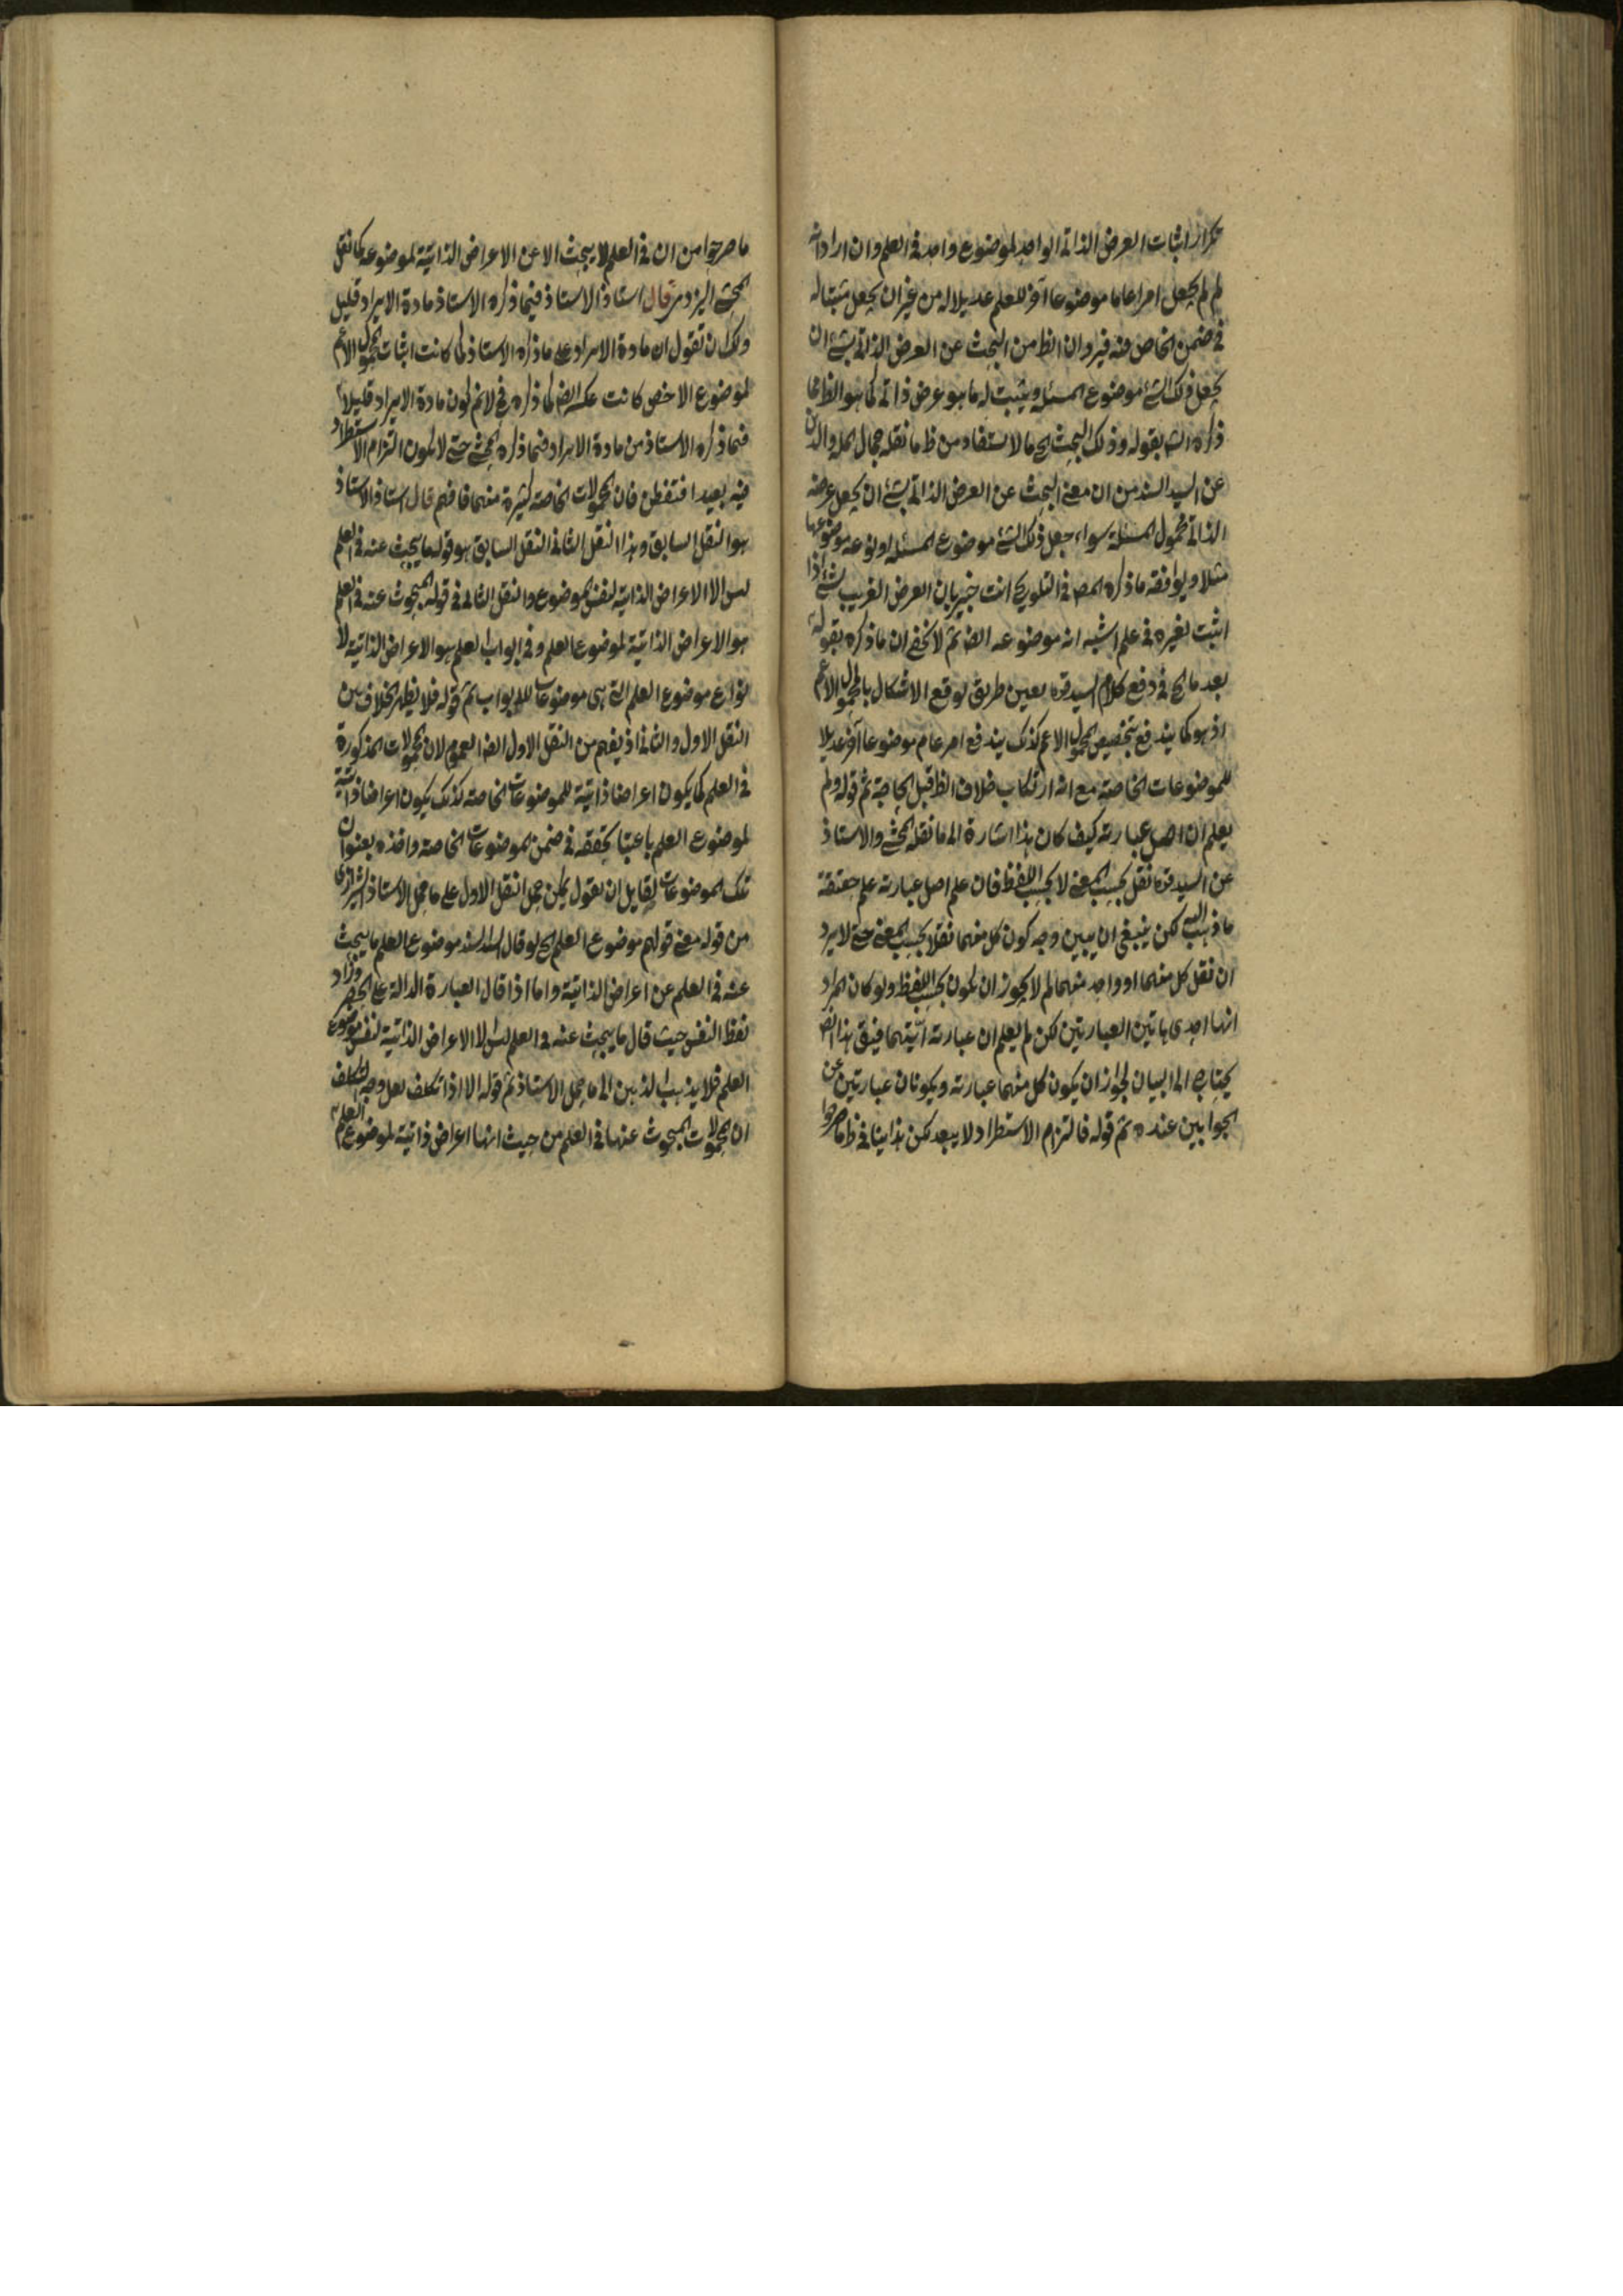 تكرار اثبات العرض الذاتى الواحد لموضوع واحد فى العلم وان اراد انه
لم لم يجعل امرا عاما موضوعا آخر للعلم عديلا له من غير ان يجعل مثبتا له
فى ضمن الخاص منه فيرد ان الظ من البحث عن العرض الذاتى لشئ ان
يجعل ذلك الشئ موضوع المسئلة ويثبت له ما هو عرض ذاتى كما هو الظ مما
ذكره الش بقوله وذلك البحث الخ ما لا يستفاد من ظ ما نقله جمال الملة والدين
عن السيد السند من ان معنى البحث عن العرض الذاتى لشئ ان يجعل عرضه
الذاتى محمول المسئلة سواء جعل ذلك الشئ موضوع المسئلة او نوعه موضوعها
مثلا ويوافقه ما ذكره المص فى التلويح انت خبير بان العرض الغريب لشئ اذا
اثبت لغيره فى علم اشبه انه موضوعه ايضا ثم لا يخفى ان ما ذكره بقوله
بعد ما الخ فى دفع كلام السيد قده يعين طريق لوقع الاشكال بالمحمول الاعم
اذ هو كما يندفع بتخصيص المحمول الاعم كذلك يندفع امر عام موضوعا آخر عديلا
للموضوعات الخاصة مع انه ارتكاب خلاف الظ قبل الحاجة ثم قوله ولم
يعلم ان اصل عبارته كيف كان هذا اشارة الى ما نقله المحشى والاستاذ
عن السيد قده نقل بحسب المعنى لا بحسب اللفظ فان علم اصل عبارته علم حقيقة
ما ذهب اليه لكن ينبغى ان يبين وجه كون كل منهما نقلا بحسب المعنى حتى لا يرد
ان نقل كل منهما او واحد منهما لم لا يجوز ان يكون بحسب اللفظ ولو كان المراد
انها احدى هاتين العبارتين لكن لم يعلم ان عبارته ايتهما فيبقى هذا ايضا
يحتاج الى البيان لجواز ان يكون كل منهما عبارته ويكونان عبارتين عن
الجوابين عنده ثم قوله فالتزام الاستطراد لا يبعد لكن هذا ينافى ظ ما صرحوا
ما صرحوا من ان فى العلم لا يبحث الا عن الاعراض الذاتية لموضوعه كما نقل
المحشى اليزدى قال استاذ الاستاذ فيما ذكره الاستاذ مادة الايراد قليل
ولك ان تقول ان مادة الايراد على ما ذكره الاستاذ لما كانت اثبات المحمول الاعم
لموضوع الاخص كانت عكسه ايضا كما ذكره فلا نم كون مادة الايراد قليلا
فيما ذكره الاستاذ من مادة الايراد فيما ذكره المحشى حتى لا يكون التزام الاستطراد
فيه بعيدا فتفطن فان المحمولات الخاصة كثيرة منهما فافهم قال استاذ الاستاذ
هو النقل السابق وهذا النقل الثانى النقل السابق هو قوله ما يبحث عنه فى العلم
ليس الا الاعراض الذاتية لنفس الموضوع والنقل الثانى فى قوله المبحوث عنه فى العلم
هو الاعراض الذاتية لموضوع العلم وفى ابواب العلم هو الاعراض الذاتية لا
نواع موضوع العلم التى هى موضوعات للابواب ثم قوله فلا يظهر الخلاف بين
النقل الاول والثانى اذ يفهم من النقل الاول ايضا العموم لان المحمولات المذكورة
فى العلم كما يكون اعراضا ذاتية للموضوعات الخاصة كذلك يكون اعراضا ذاتية
لموضوع العلم باعتبار تحققه فى ضمن الموضوعات الخاصة واخذه بعنوان
تلك الموضوعات لقايل ان يقول يمكن حمل النقل الاول على ما حمل الاستاذ الشيرازى
من قوله معنى قولهم موضوع العلم الخ لو قال السيد السند موضوع العلم ما يبحث
عنه فى العلم عن اعراض الذاتية واما اذا قال العبارة الدالة على الحصر وزاد
لفظ النفس حيث قال ما يبحث عنه فى العلم ليس الا الاعراض الذاتية لنفس موضوع
العلم فلا يذهب الذهن الى ما حمل الاستاذ ثم قوله الا اذا تكلف لعل وجه التكلف
ان المحمولات المبحوث عنها فى العلم من حيث انها اعراض ذاتية لموضوع العلم